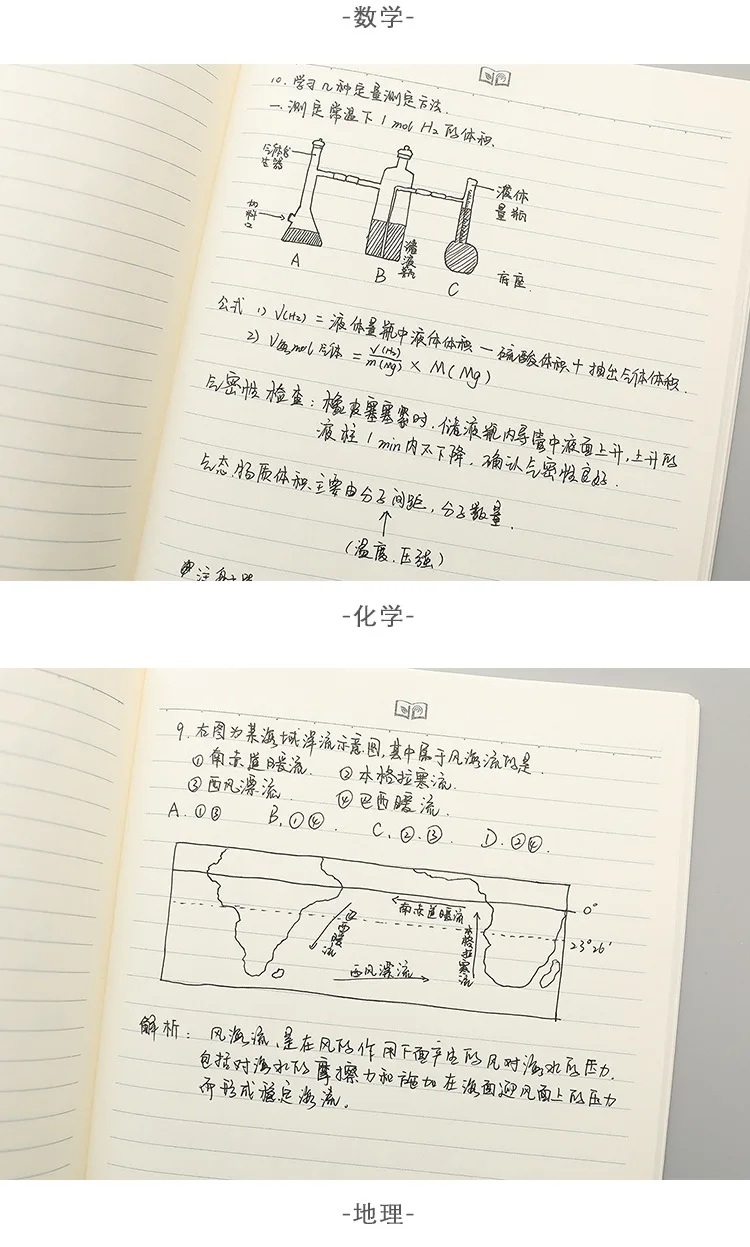 -数学-
10. 学习几种定量测定方法.
一.测定常温下1mol H₂的体积.
气体发
生器
加料
口
储
液
瓶
液体
量瓶
底座.
A
B
C
公式 1) V(H₂) = 液体量瓶中液体体积 - 硫酸体积 + 抽出气体体积.
2) V每mol气体 = V(H₂)/m(Mg) × M(Mg)
气密性检查: 橡皮塞塞紧时. 储液瓶内导管中液面上升, 上升的
液柱1min内不下降. 确认气密性良好.
气态物质体积主要由分子间距, 分子数量.
↑
(温度.压强)
-化学-
9. 右图为某海域洋流示意图, 其中属于风海流的是.
①南赤道暖流. ②本格拉寒流.
③西风漂流. ④巴西暖流.
A. ①③ B. ①④. C. ②.③ D. ②④.
0°
南赤道暖流
巴西暖流
本格拉寒流
23°26′
西风漂流
解析: 风海流, 是在风的作用下面产生的风对海水的压力.
包括对海水的摩擦力和施加在海面迎风面上的压力
而形成稳定海流.
-地理-